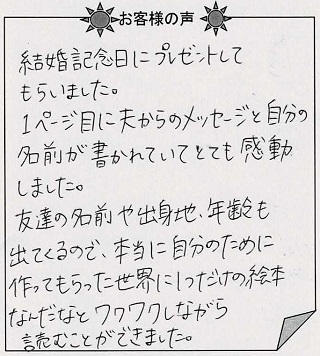 お客様の声
結婚記念日にプレゼントして
もらいました。
1ページ目に夫からのメッセージと自分の
名前が書かれていてとても感動
しました。
友達の名前や出身地、年齢も
出てくるので、本当に自分のために
作ってもらった世界に1つだけの絵本
なんだなとワクワクしながら
読むことができました。